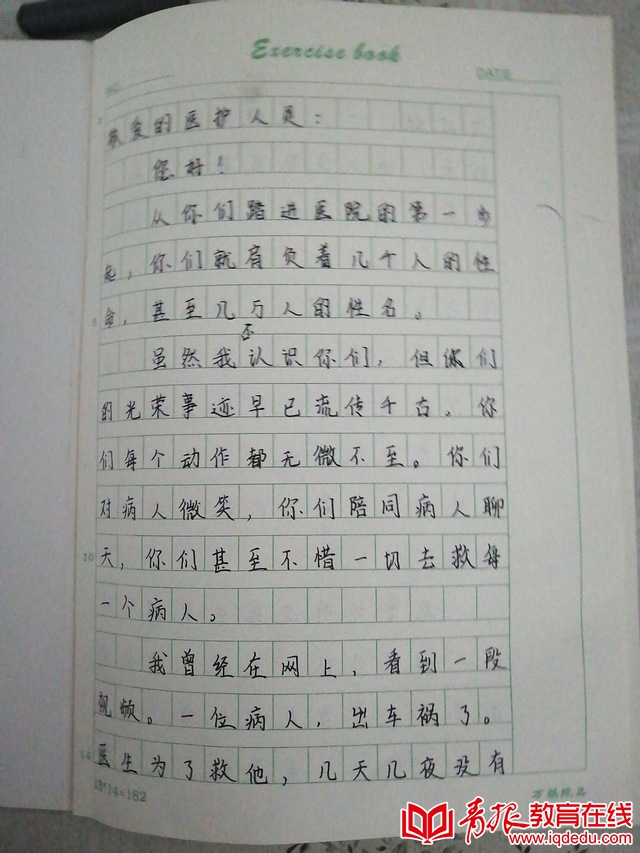 Exercise book
DATE
敬爱的医护人员：
您好！
从你们踏进医院的第一步
起，你们就肩负着几千人的性
命，甚至几万人的性名。
虽然我不认识你们，但你们
的光荣事迹早已流传千古。你
们每个动作都无微不至。你们
对病人微笑，你们陪同病人聊
天，你们甚至不惜一切去救每
一个病人。
我曾经在网上，看到一段
视频。一位病人，出车祸了。
医生为了救他，几天几夜没有
5
10
14
13*14=182
青报教育在线
www.iqdedu.com